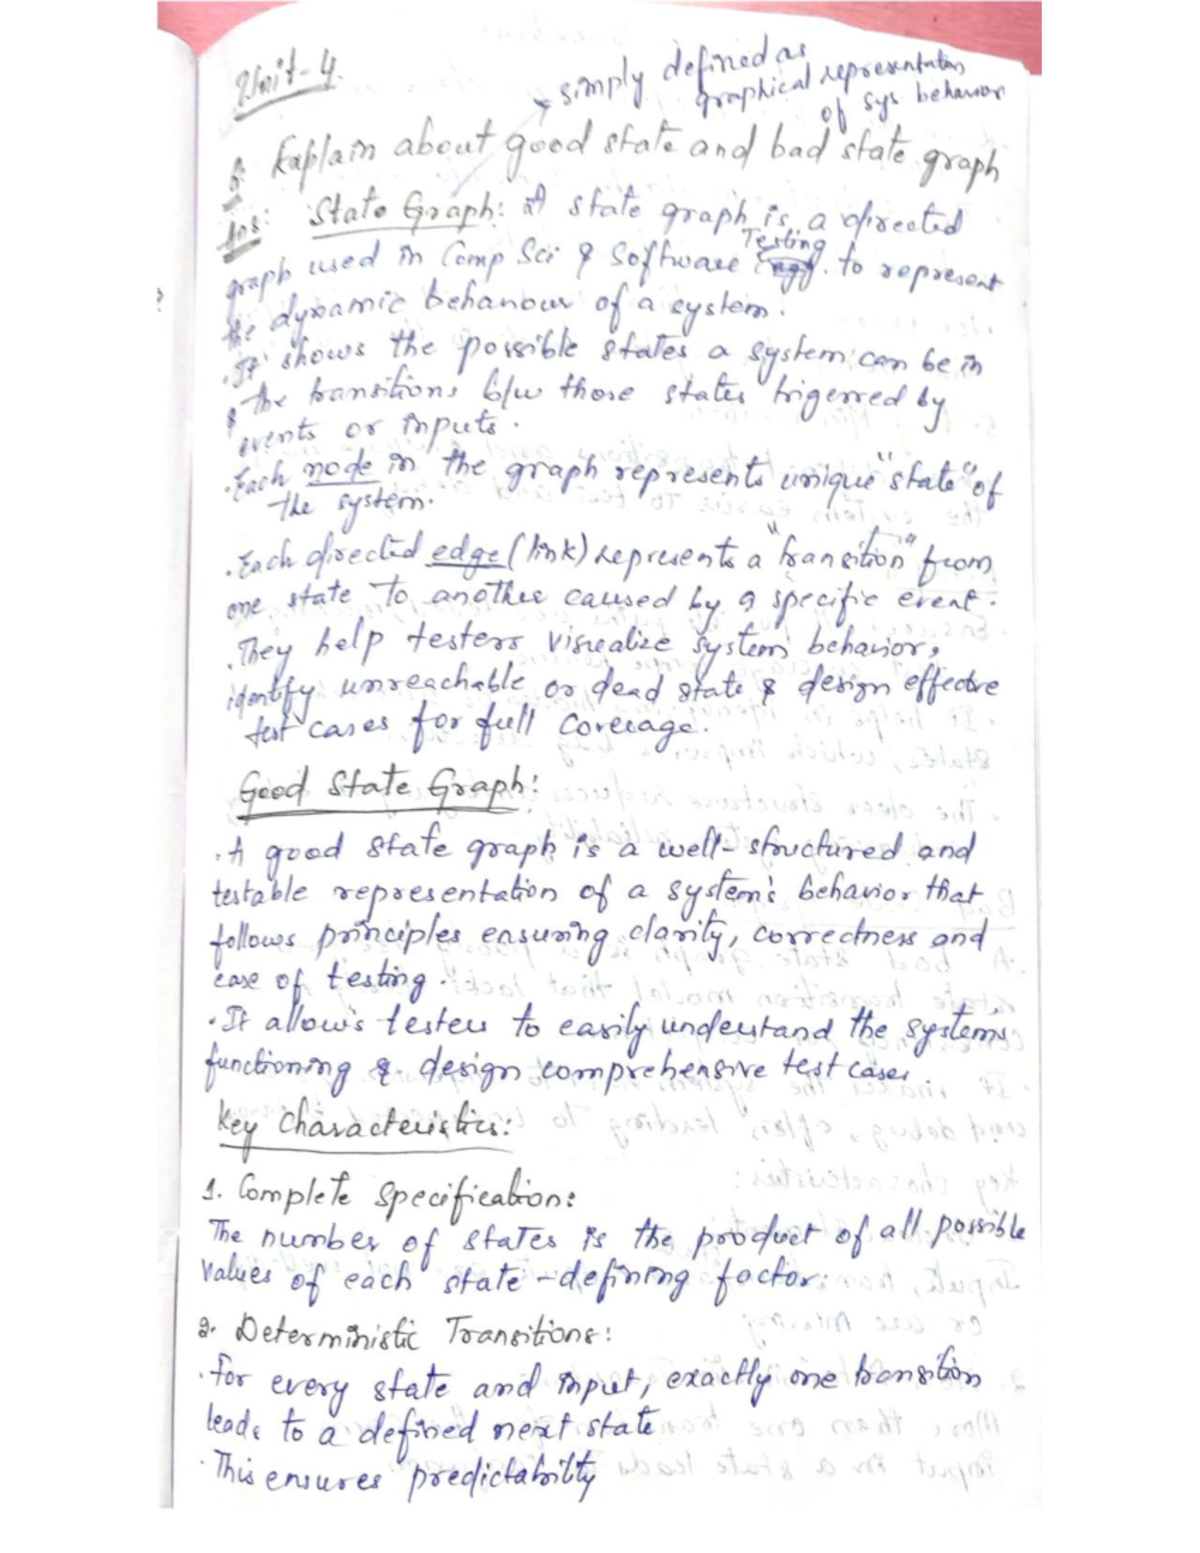 Unit-4.
simply defined as
graphical representation
of sys behavior
Q: Explain about good state and bad state graph
Ans: State Graph: A state graph is a directed
Testing
graph used in Comp Sci & Software to represent
the dynamic behaviour of a system.
. It shows the possible states a system can be in
& the transitions b/w those states trigerred by
events or inputs.
. Each node in the graph represents unique "state" of
the system.
. Each directed edge (link) represents a "transition" from
one state to another caused by a specific event.
. They help testers visualize system behavior,
identify unreachable or dead state & design effective
test cases for full coverage.
Good State Graph:
. A good state graph is a well-structured and
testable representation of a system's behavior that
follows principles ensuring clarity, correctness and
ease of testing.
. It allows testers to easily understand the systems
functioning & design comprehensive test cases.
Key Characteristics:
1. Complete Specification:
The number of states is the product of all possible
values of each state-defining factor.
2. Deterministic Transitions:
. For every state and input, exactly one transition
leads to a defined next state
. This ensures predictability